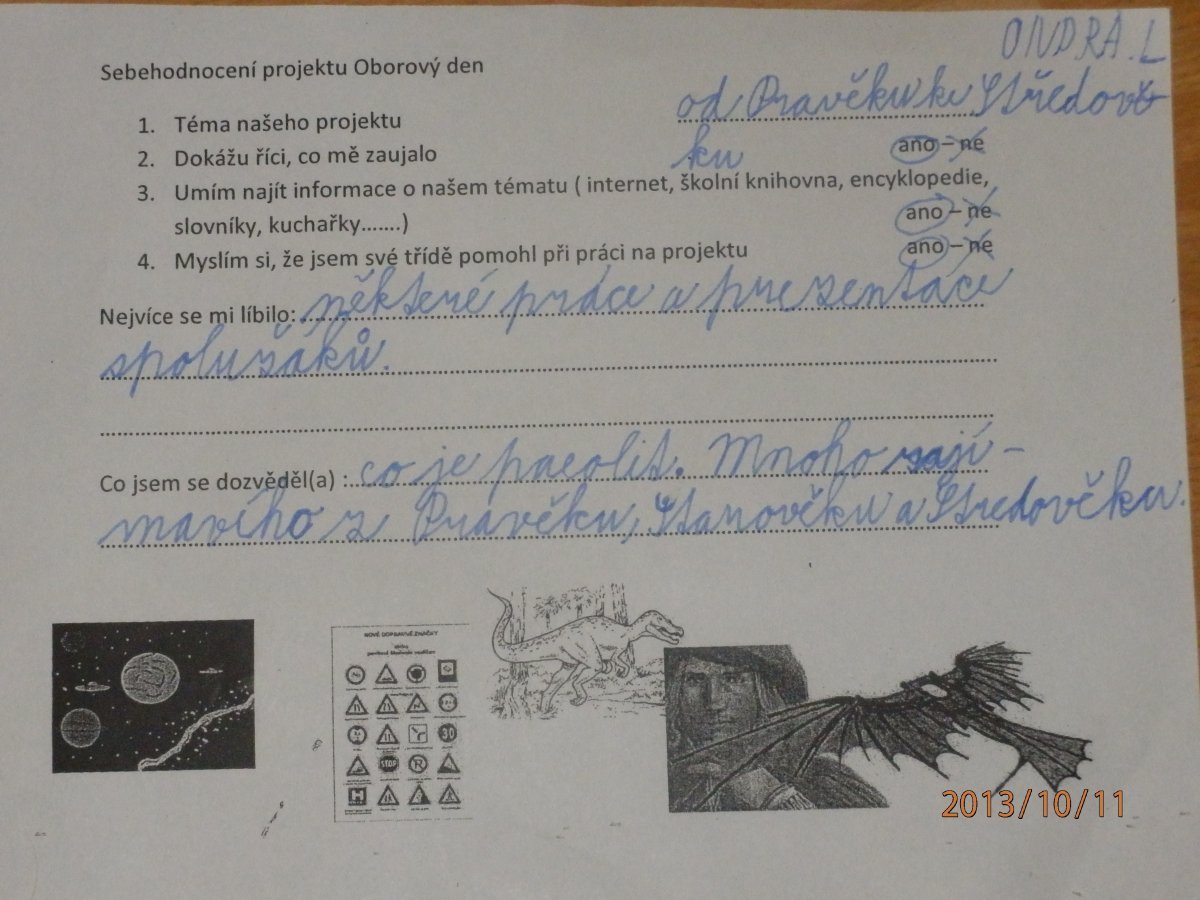 ONDRA.L
Sebehodnocení projektu Oborový den
1. Téma našeho projektu od Pravěku ke Středově
2. Dokážu říci, co mě zaujalo ku ano – ne
3. Umím najít informace o našem tématu ( internet, školní knihovna, encyklopedie,
slovníky, kuchařky…….) ano – ne
4. Myslím si, že jsem své třídě pomohl při práci na projektu ano – ne
Nejvíce se mi líbilo: některé práce a prezentace
spolužáků.
Co jsem se dozvěděl(a) : co je paeolit. Mnoho zají-
mavího z Pravěku, Starověku a Středověku.
NOVÉ DOPRAVNÍ ZNAČKY
30
STOP
H
2013/10/11